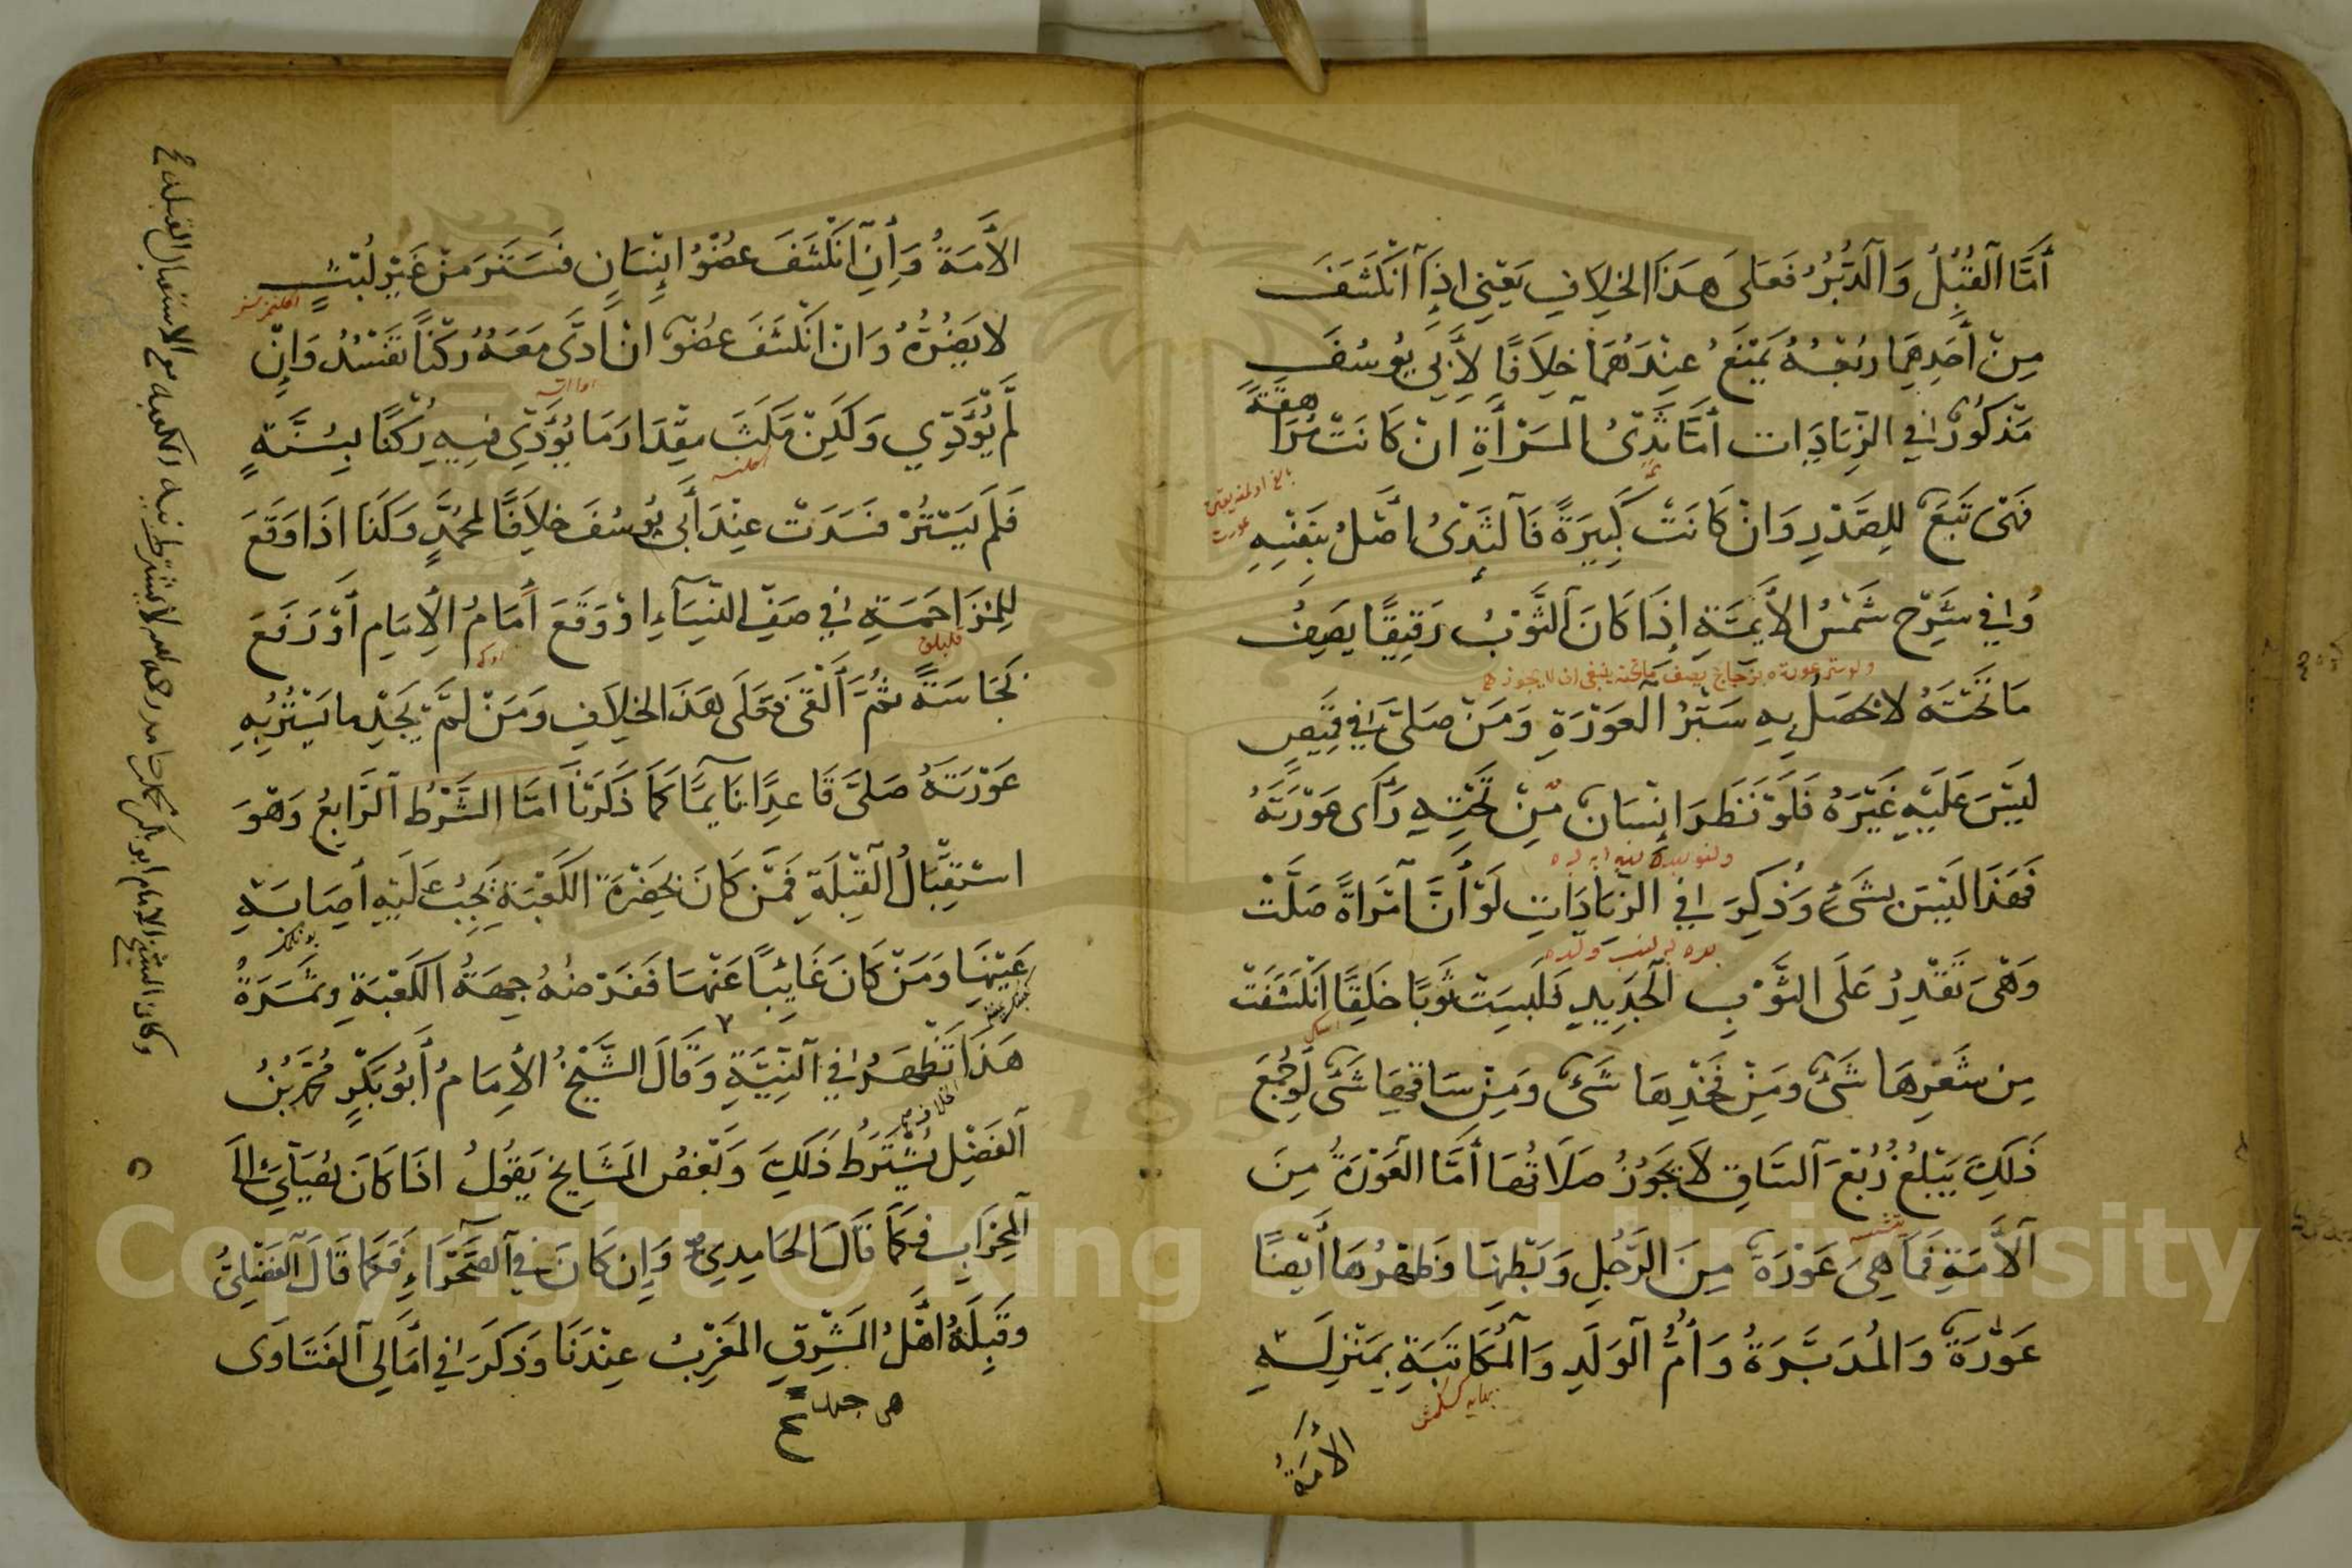 أَمَّا الْقُبُلُ وَالدُّبُرُ فَعَلَى هَذَا الخِلَافِ يَعْنِي اِذَا انْكَشَفَ
مِنْ أَحَدِهِمَا رُبْعُهُ يَمْنَعُ عِنْدَهُمَا خِلَافًا لِأَبِي يُوسُفَ
مَذْكُورٌ فِي الزِّيَادَاتِ أَمَّا ثَدْيُ الْمَرْأَةِ اِنْ كَانَتْ مُرَاهِقَةً
فَهِيَ تَبَعٌ لِلصَّدْرِ وَانْ كَانَتْ كَبِيرَةً فَالثَدْيُ اصْلٌ بِنَفْسِهِ
وَفِي شَرْحِ شَمْسُ الأَيِمَّةِ إِذَا كَانَ الثَّوْبُ رَقِيقًا يَصِفُ
ولو ستر عورته بزجاج يصف ما تحته ينبغي ان لا يجوز
مَا تَحْتَهُ لَا يَحْصُلُ بِهِ سَتْرُ الْعَوْرَةِ وَمَنْ صَلَّى فِي قَمِيصٍ
لَيْسَ عَلَيْهِ غَيْرَهُ فَلَوْ نَظَرَ اِنْسَانٌ مِنْ تَحْتِهِ رَأَى عَوْرَتَهُ
فَهَذَا لَيْسَ بِشَيْءٍ وَذُكِرَ فِي الزِيَادَاتِ لَوْ أَنَّ اَمْرَاةً صَلَّتْ
وَهْيَ تَقْدِرُ عَلَى الثَّوْبِ الْجَدِيدِ فَلَبِسَتْ ثَوْبًا خَلِقًا اَنْكَشَفَتْ
مِن شَعْرِهَا شَيْءٌ ومِنْ فَخْذِهَا شَيْءٌ وَمِنْ سَاقِهَا شَيْءٌ لَوْ جُمِعَ
ذَلِكَ يَبْلُغُ رُبْعَ السَّاقِ لَا يَجُوزُ صَلَاتُهَا أَمَّا الْعَوْرَةُ مِنَ
الْأَمَةِ فَمَا هِيَ عَوْرَةٌ مِنَ الرَّجُلِ وَبَطْنُهَا وَظَهْرُهَا أَيْضًا
عَوْرَةٌ وَالْمُدَبَّرَةُ وَأُمُّ الْوَلَدِ وَالْمُكَاتَبَةِ بِمَنْزِلَةِ
الأَمَةُ
الأَمَةُ وَإِنِ انْكَشَفَ عُضْوُ اِنْسَانٍ فَسَتَرَ مِنْ غَيْرِ لُبْثٍ
لَا يَضُرُّهُ وَانْ انْكَشَفَ عُضْوٌ انْ ادَّى مَعَهُ رُكْنًا تَفْسُدُ وَاِنْ
لَمْ يُؤَدِّي وَلَكِنْ مَكَثَ مِقْدَارَ مَا يُؤَدِّي فِيهِ رُكْنًا بِسُنَّةٍ
فَلَمْ يَسْتُرْ فَسَدَتْ عِنْدَ أَبِي يُوسُفَ خِلَافًا لِمُحَمَّدٍ وَكَذَا اذَا وَقَعَ
لِلْمُزَاحَمَةِ فِي صَفِّ النِّسَاءِ اوْ وَقَعَ أَمَامُ الْإِمَامِ أَوْ رَفَعَ
نَجَاسَةً ثُمَّ أَلْقَى فَعَلَى هَذَا الْخِلَافِ وَمَنْ لَمْ يَجِدْ مَا يَسْتُرُ بِهِ
عَوْرَتَهُ صَلَّى قَاعِدًا نَايِمًا كَمَا ذَكَرْنَا امَّا الشَّرْطُ الرَّابِعُ وَهْوَ
اسْتِقْبَالُ الْقِبْلَةِ فَمَنْ كَانَ بِحَضْرَةِ الكَعْبَةِ يَجِبُ عَلَيْهِ أَصَابَةِ
عَيْنِهَا وَمَنْ كَانَ غَايِبًا عَنْهَا فَفَرْضُهُ جِهَةُ الكَعْبَةِ وثَمَرَةُ
هَذَا تَظْهَرُ فِي النِيَّةِ وَقَالَ الشَّيْخُ الْإِمَامُ أَبُو بَكْرٍ مُحَمَّدُ بْنُ
الْفَضْلِ يُشْتَرَطُ ذَلِكَ وَبَعْضُ الْمَشَايِخِ يَقُولُ اذَا كَانَ يُصَلِّي الَى
الْمِحْرَابِ فَكَمَا قَالَ الحَامِدِي وَإِن كَانَ فِي الصَّحْرَاءِ فَكَمَا قَالَ الْفَضْلِيُّ
وقِبْلَةُ اهْلُ الْمَشْرِقِ الْمَغْرِبُ عِنْدَنَا وَذَكَرَ فِي امَالِي الْفَتَاوَى
هى جهة
وكان الشيخ الامام ابو بكر محمد بن حامد رحمه الله لا يشترط نية الكعبة مع الاستقبال القبلة